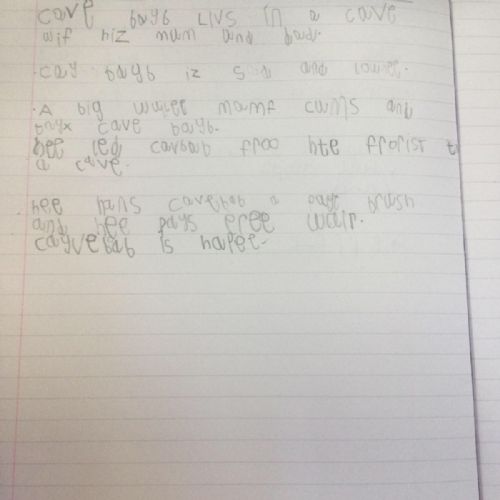 cave bayb Livs in a cave
wif hiz mum and bad.
cay bayb iz Sad and
A big mamf cums and
cave bayb.
hee led cavbab froo hte fforist t
a cave.
hee cavebab a brush
and hee pays eree
cayvebab is hapee.